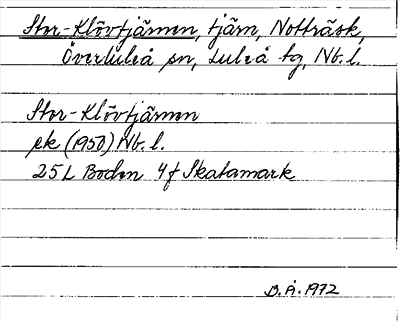 Stor-Klövtjärnen, tjärn, Notträsk,
Överluleå sn, Luleå tg, Nb. l.
Stor-Klövtjärnen
ek (1950) Nb. l.
25L Boden 4f Skatamark
B.Å. 1972